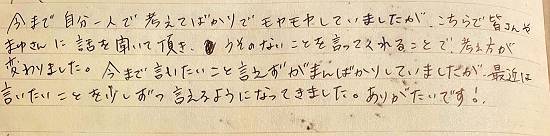 今まで自分一人で考えてばかりでモヤモヤしていましたが、こちらで皆さんや
まゆさんに話を聞いて頂き、うそのないことを言ってくれることで考え方が
変わりました。今まで言いたいこと言えずがまんばかりしていましたが、最近は
言いたいことを少しずつ言えるようになってきました。ありがたいです!